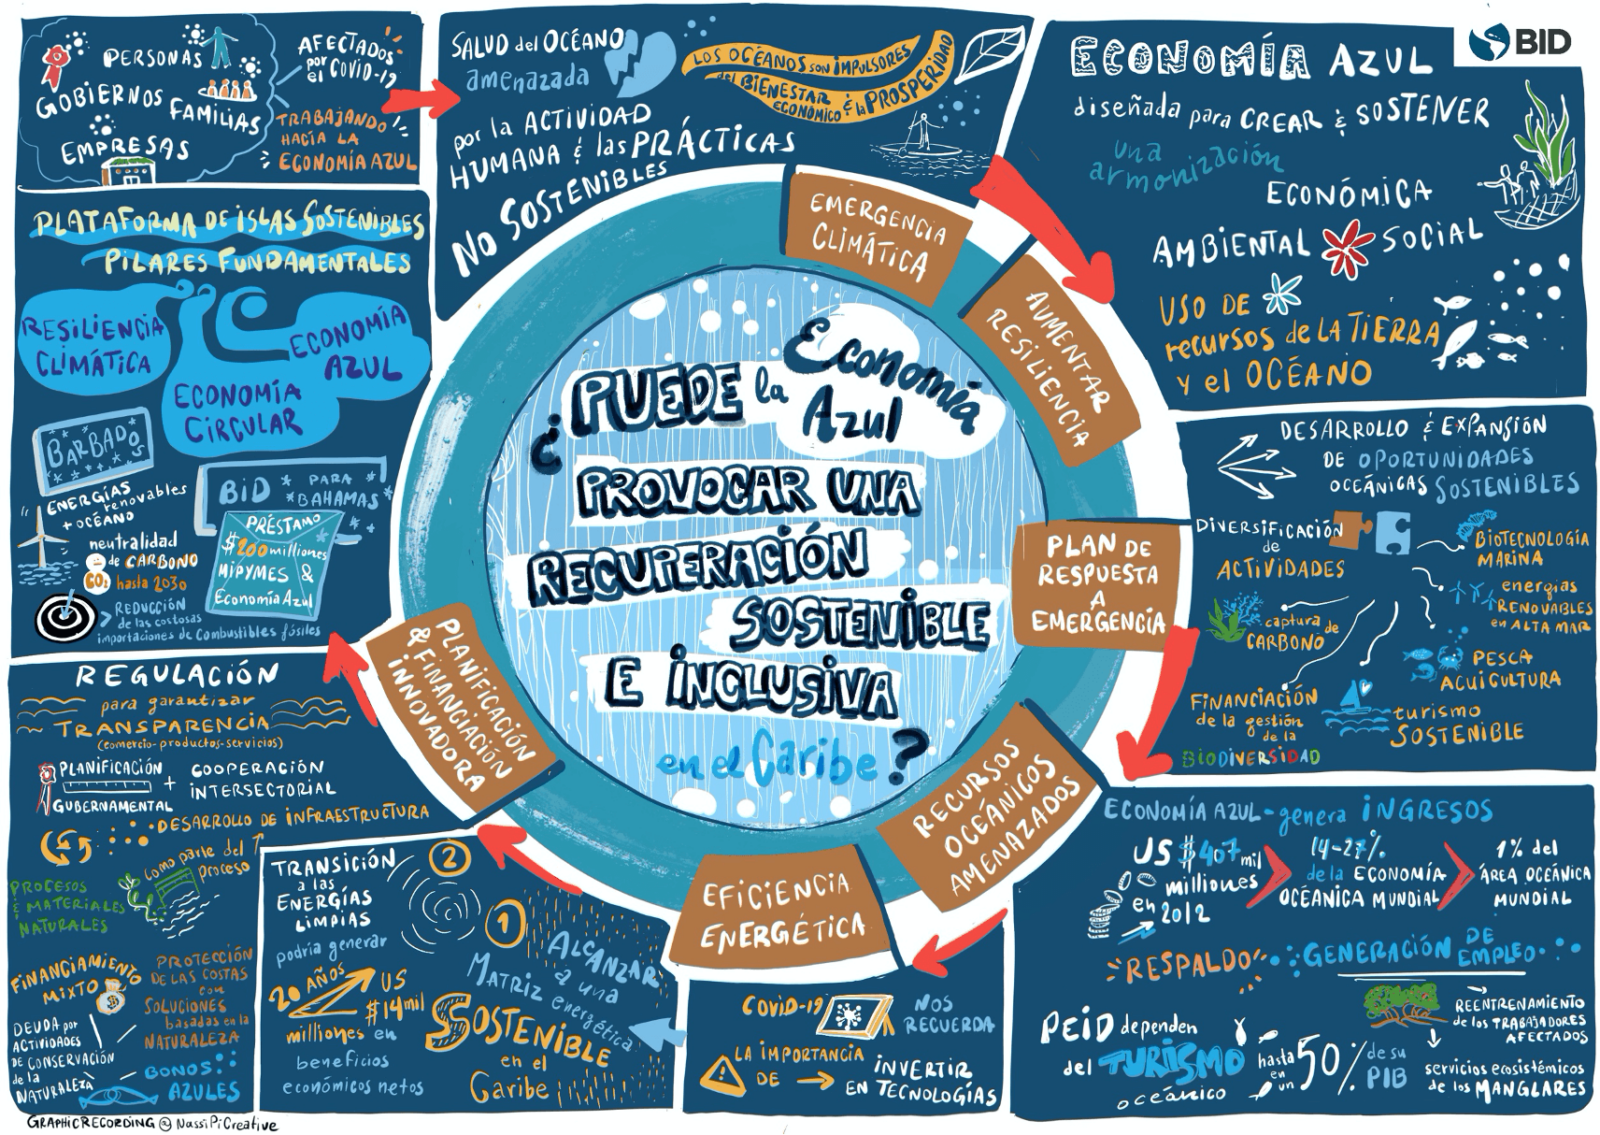 PERSONAS
GOBIERNOS
FAMILIAS
EMPRESAS
AFECTADOS
por
el COVID-19
TRABAJANDO
HACIA LA
ECONOMÍA AZUL
SALUD del OCÉANO
amenazada
por la ACTIVIDAD
HUMANA & las PRÁCTICAS
NO SOSTENIBLES
LOS OCÉANOS SON IMPULSORES
del BIENESTAR
ECONÓMICO & la PROSPERIDAD
BID
ECONOMÍA AZUL
diseñada para CREAR & SOSTENER
una
armonización
ECONÓMICA
AMBIENTAL
SOCIAL
USO DE
recursos de LA TIERRA
y el OCÉANO
PLATAFORMA DE ISLAS SOSTENIBLES
PILARES FUNDAMENTALES
RESILIENCIA
CLIMÁTICA
ECONOMÍA
AZUL
ECONOMÍA
CIRCULAR
BARBADOS
ENERGÍAS
renovables
+ OCÉANO
neutralidad
de CARBONO
CO2
hasta 2030
> REDUCCIÓN
de las costosas
importaciones de Combustibles fósiles
BID
PARA
BAHAMAS
PRÉSTAMO
$200 millones
MIPYMES &
Economía Azul
¿PUEDE la Economía
Azul
PROVOCAR UNA
RECUPERACIÓN
SOSTENIBLE
E INCLUSIVA
en el Caribe?
EMERGENCIA
CLIMÁTICA
AUMENTAR
RESILIENCIA
PLAN DE
RESPUESTA
A
EMERGENCIA
RECURSOS
OCEÁNICOS
AMENAZADOS
EFICIENCIA
ENERGÉTICA
PLANIFICACIÓN
& FINANCIACIÓN
INNOVADORA
DESARROLLO & EXPANSIÓN
DE OPORTUNIDADES
OCEÁNICAS SOSTENIBLES
DIVERSIFICACIÓN
de
ACTIVIDADES
BIOTECNOLOGÍA
MARINA
energías
RENOVABLES
en ALTA MAR
captura de
CARBONO
PESCA
ACUICULTURA
FINANCIACIÓN
de la gestión
de la
BIODIVERSIDAD
turismo
SOSTENIBLE
ECONOMÍA AZUL - genera INGRESOS
US $407 mil
millones
en 2012
14-27%
de la ECONOMÍA
OCEÁNICA MUNDIAL
1% del
ÁREA OCEÁNICA
MUNDIAL
RESPALDO
GENERACIÓN DE
EMPLEO
PEID dependen
del TURISMO
oceánico
hasta
en
un
50%
de su
PIB
REENTRENAMIENTO
de los TRABAJADORES
AFECTADOS
servicios ecosistémicos
de los MANGLARES
COVID-19
NOS
RECUERDA
LA IMPORTANCIA
DE
INVERTIR
EN TECNOLOGÍAS
TRANSICIÓN
a las
ENERGÍAS
LIMPIAS
podría generar
20 AÑOS
US
$14 mil
millones en
beneficios
económicos netos
2
1
ALCANZAR
a una
MATRIZ energética
SOSTENIBLE
en el
Caribe
REGULACIÓN
para garantizar
TRANSPARENCIA
(comercio-productos-servicios)
PLANIFICACIÓN
GUBERNAMENTAL
+
COOPERACIÓN
INTERSECTORIAL
DESARROLLO DE INFRAESTRUCTURA
como parte del
proceso
PROCESOS
& MATERIALES
NATURALES
FINANCIAMIENTO
MIXTO
$
PROTECCIÓN
DE LAS COSTAS
con
SOLUCIONES
basadas en la
NATURALEZA
DEUDA por
ACTIVIDADES
DE CONSERVACIÓN
de la
NATURALEZA
BONOS
AZULES
GRAPHIC RECORDING @ NassiPiCreative